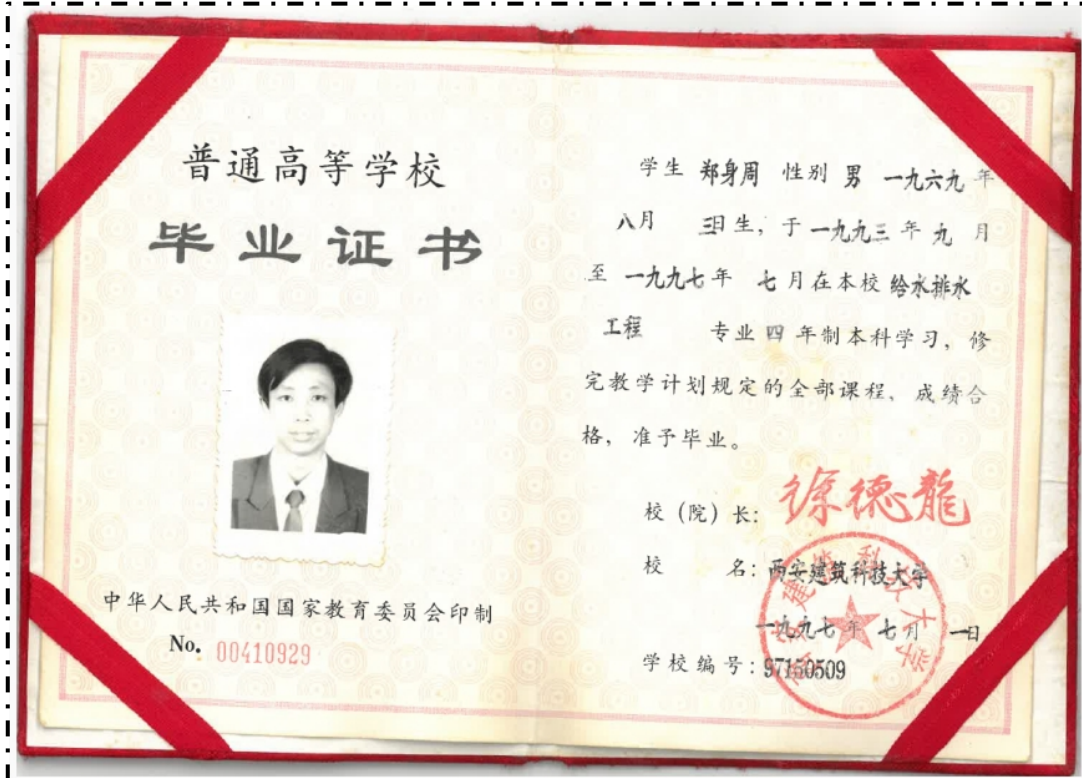 普通高等学校
毕业证书
中华人民共和国国家教育委员会印制
No. 00410929
学生 郑身周 性别 男 一九六九 年
八月 三日生, 于 一九九三 年 九 月
至 一九九七 年 七 月在本校 给水排水
工程 专业 四 年制本科学习, 修
完教学计划规定的全部课程, 成绩合
格, 准予毕业。
校(院)长: 徐德龍
校 名: 西安建筑科技大学
一九九七 年 七 月 一日
学校编号: 97150509
西安建筑科技大学